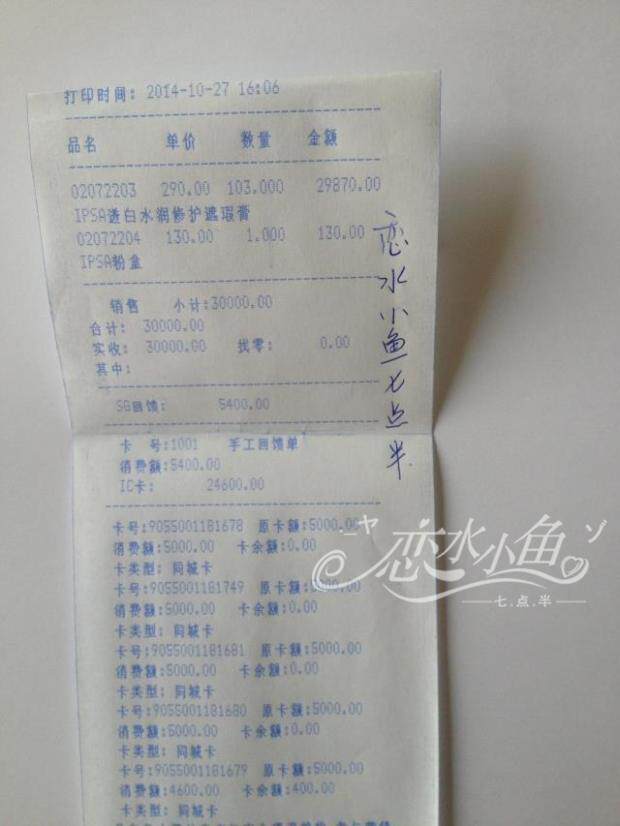 打印时间: 2014-10-27 16:06
品名 单价 数量 金额
02072203 290.00 103.000 29870.00
IPSA透白水润修护遮瑕膏
02072204 130.00 1.000 130.00
IPSA粉盒
销售 小计:30000.00
合计: 30000.00
实收: 30000.00 找零: 0.00
其中:
SG回馈: 5400.00
卡 号:1001 手工回馈单
消费额:5400.00
IC卡: 24600.00
卡号:9055001181678 原卡额:5000.00
消费额:5000.00 卡余额:0.00
卡类型: 同城卡
卡号:9055001181749 原卡额:5000.00
消费额:5000.00 卡余额:0.00
卡类型: 同城卡
卡号:9055001181681 原卡额:5000.00
消费额:5000.00 卡余额:0.00
卡类型: 同城卡
卡号:9055001181680 原卡额:5000.00
消费额:5000.00 卡余额:0.00
卡类型: 同城卡
卡号:9055001181679 原卡额:5000.00
消费额:4600.00 卡余额:400.00
卡类型: 同城卡
恋水小鱼七点半
恋水小鱼
七.点.半